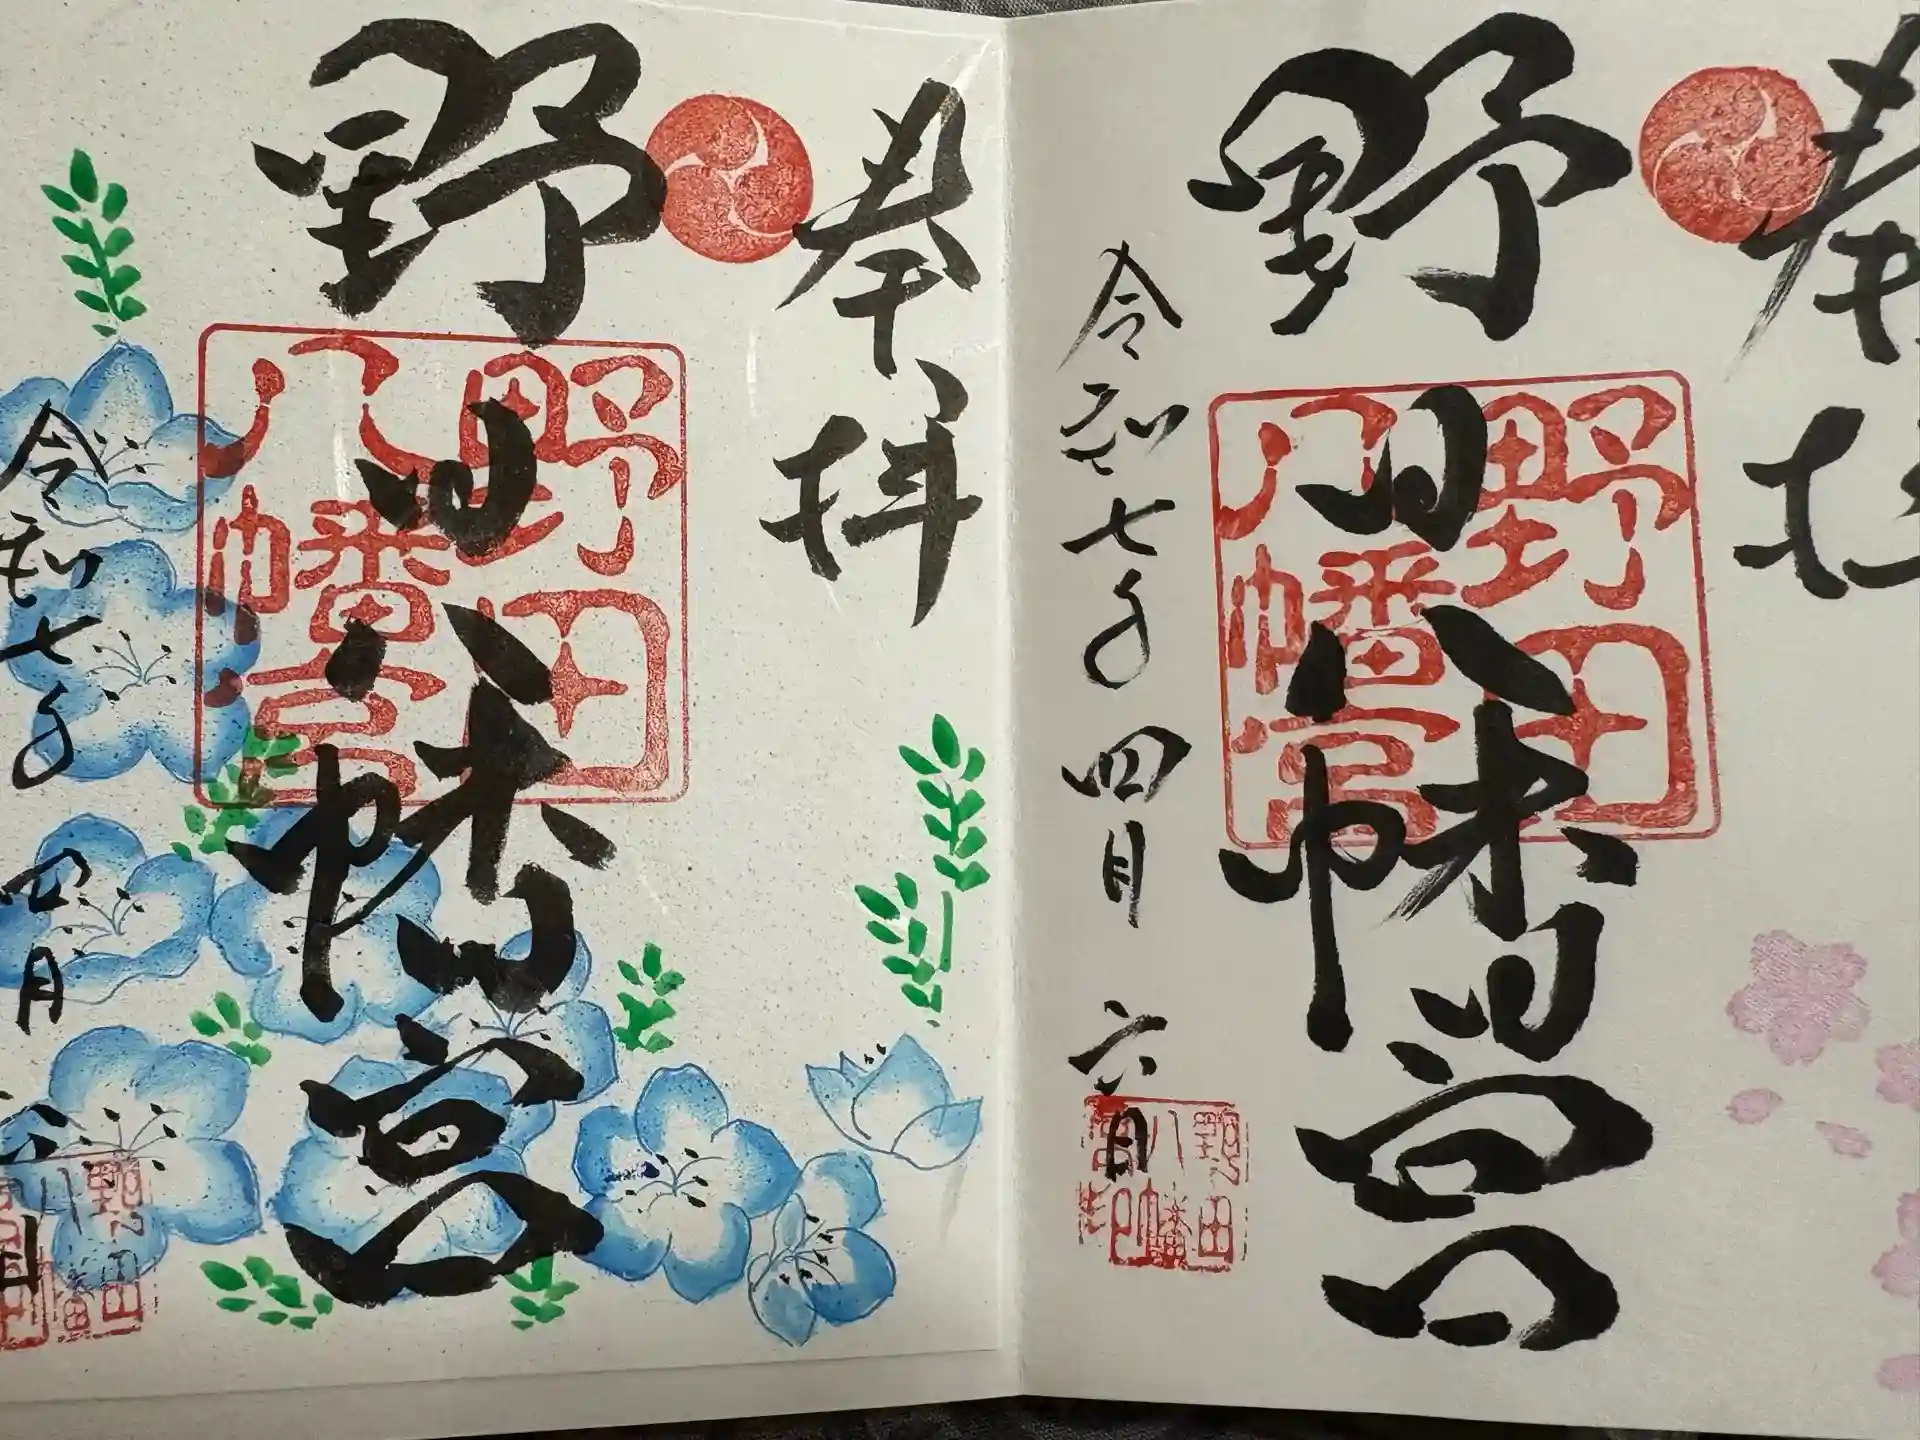 奉拝
野田八幡宮
野田
八幡宮
令和七年四月六日
奉拝
野田八幡宮
野田
八幡宮
令和七年四月六日